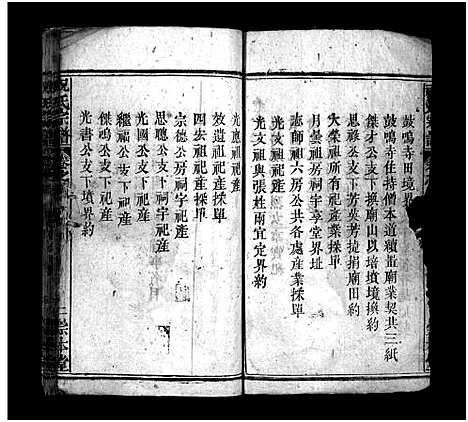 鼓鳴寺田境界
鼓鳴寺住持價本道積置廟業契共三紙
傑才公支下換廟山以培墳境換約
思祿公支下芳英芳捷捐廟田約
大榮祖所有祀產業採單
月曇祖房祠宇享堂界址
志師祖六房公共各處產業採單
光文祖祀產採單
光文祖與張姓兩宜定界約
光應祖祀產採單
效道祖祀產採單
四宏祖祀產採單
宗德公房祠宇祀產
思聰公支下祠宇祀產
光國公支下祀產
繼福公支下祀產
傑鳴公支下祀產
光書公支下墳界約
祝氏宗譜